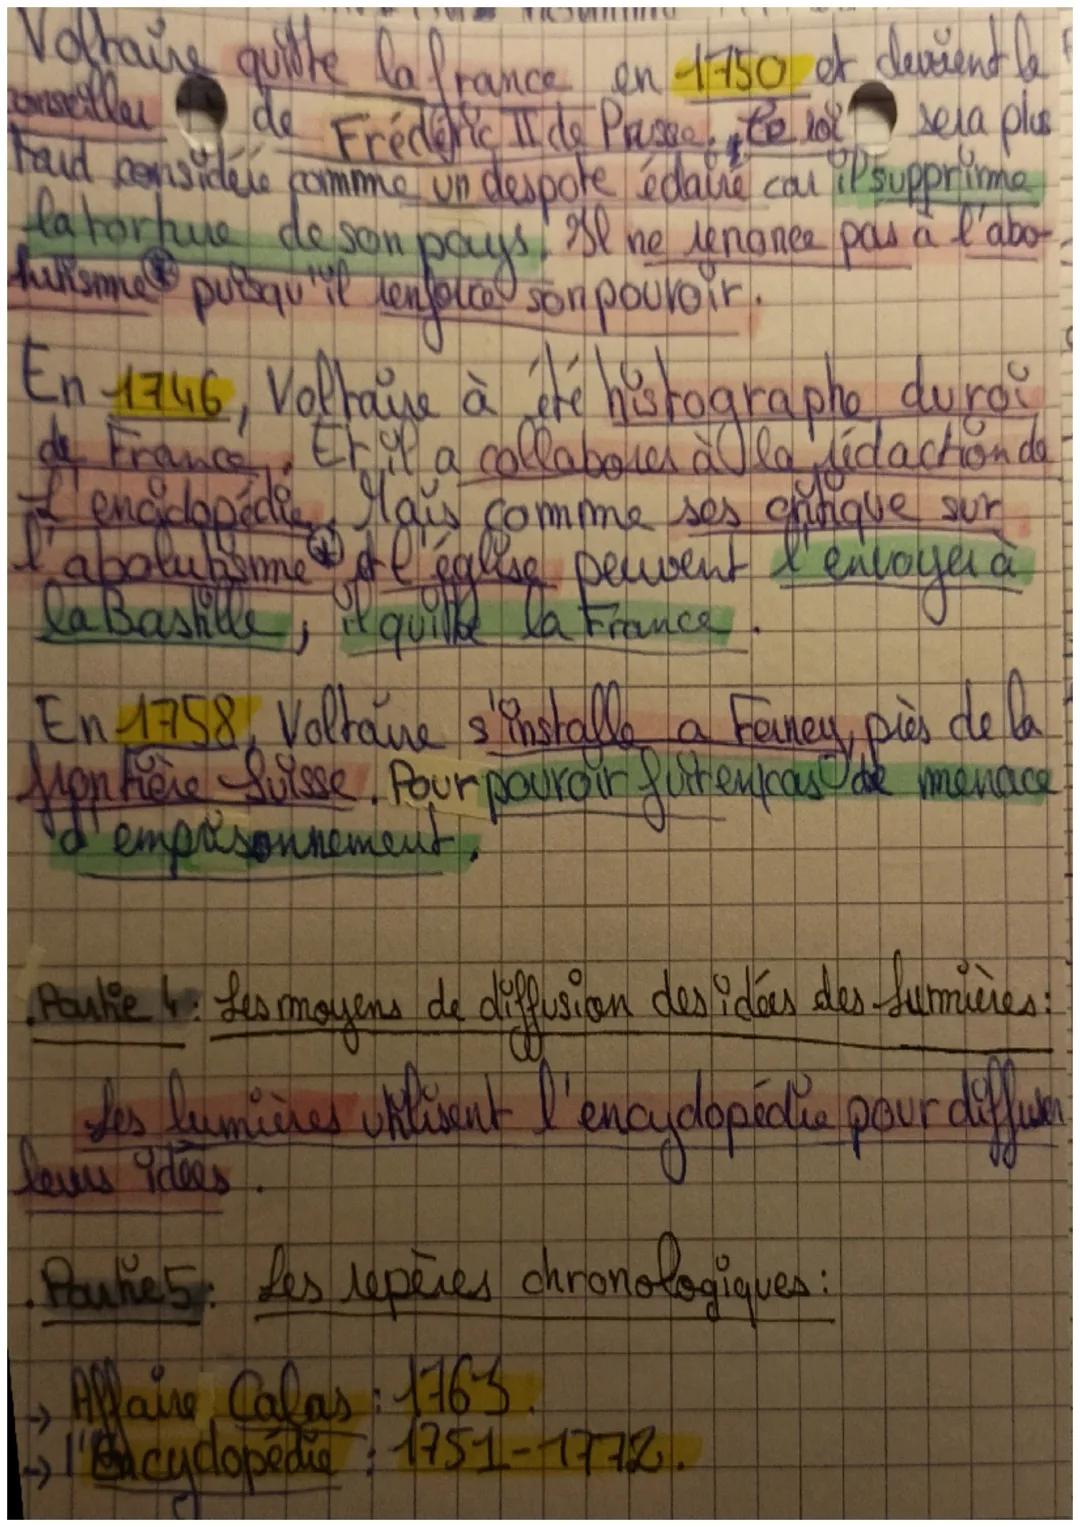 Voltaire quitte la france en 1750 et devient le
conseiller de Frédéric II de Prusse. Ce roi sera plus
tard considéré comme un despote éclairé car il supprime
la tortue de son pays. Il ne renonce pas à l'abo-
lutisme puisqu'il renforce son pouvoir.
En 1746, Voltaire à été histographe du roi
de France. Et il a collabores à la rédaction de
L'encyclopédie. Mais comme ses critique sur
l'abolutisme et l'église peuvent l'envoyer à
la Bastille, il quitte la France.
En 1758, Voltaire s'installe a Ferney, près de la
frontière Suisse. Pour pouvoir fuir en cas de menace
d'emprisonnement.
. Partie 4 : Les moyens de diffusion des idées des Lumières :
Les lumières utilisent l'encyclopédie pour diffuser
leurs idées.
. Partie 5 : Les repères chronologiques :
→ Affaire Calas : 1763.
→ l'Encyclopédie : 1751-1772.